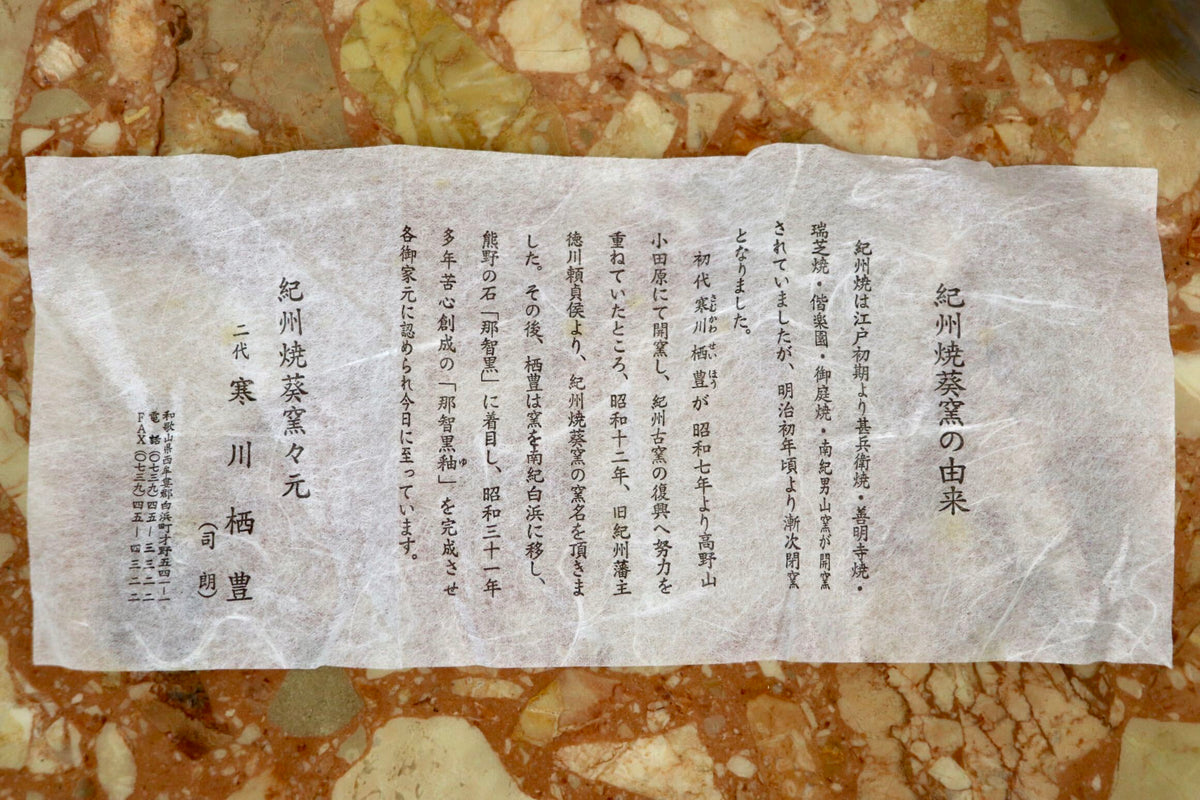 紀州焼葵窯の由来
紀州焼は江戸初期より甚兵衛焼・善明寺焼・
瑞芝焼・偕楽園・御庭焼・南紀男山窯が開窯
されていましたが、明治初年頃より漸次閉窯
となりました。
初代寒川栖豊が昭和七年より高野山
さむかわ せいほう
小田原にて開窯し、紀州古窯の復興へ努力を
重ねていたところ、昭和十二年、旧紀州藩主
徳川頼貞侯より、紀州焼葵窯の窯名を頂きま
した。その後、栖豊は窯を南紀白浜に移し、
熊野の石「那智黒」に着目し、昭和三十一年
多年苦心創成の「那智黒釉」を完成させ
ゆ
各御家元に認められ今日に至っています。
紀州焼葵窯々元
二代 寒川栖豊
(司朗)
和歌山県西牟婁郡白浜町才野五四一-一
電話(〇七三九)四五-三三二二
FAX(〇七三九)四五-四三二二